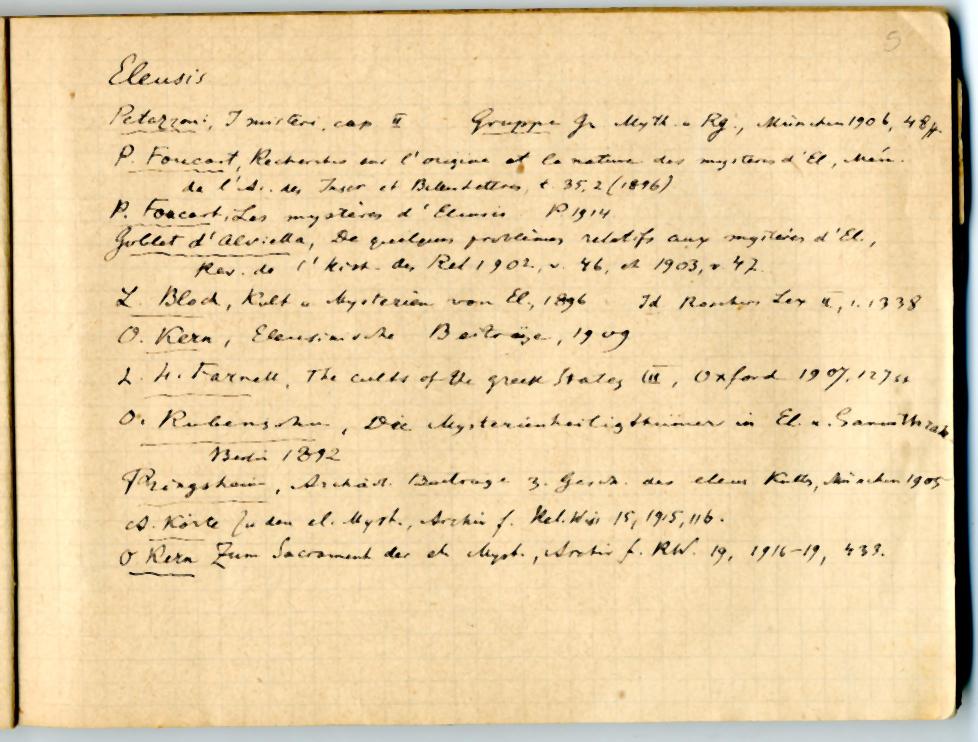 5
Eleusis
Petazzoni, I misteri, cap II Gruppe Gr. Myth. u Rg., München 1906, 48ff.
P. Foucart, Recherches sur l'origine et la nature des mystères d'El, Mém.
de l'Ac. des Inscr et Belleslettres, t. 35, 2 (1896)
P. Foucart, Les mystères d'Eleusis P 1914
Goblet d'Alviella, De quelques problèmes relatifs aux mystères d'El.,
Rev. de l'Hist. des Rel 1902, v. 46, et 1903, v 47.
L. Bloch, Kult u Mysterien von El, 1896 Id Roschers Lex II, 1.1338
O. Kern, Eleusinische Beiträge, 1909
L. H. Farnell, The cults of the greek States III, Oxford 1907, 127ss
O. Rubensohn, Die Mysterienheiligthümer in El. u. Samothrake
Berlin 1892
Pringsheim, Archäol. Beitrage z. Gesch. des eleus Kults, München 1905
A. Körte Zu den el. Myst., Archiv f. Rel. Wiss 15, 1915, 116.
O Kern Zum Sacrament der el. Myst., Archiv f. RW. 19, 1916-19, 433.